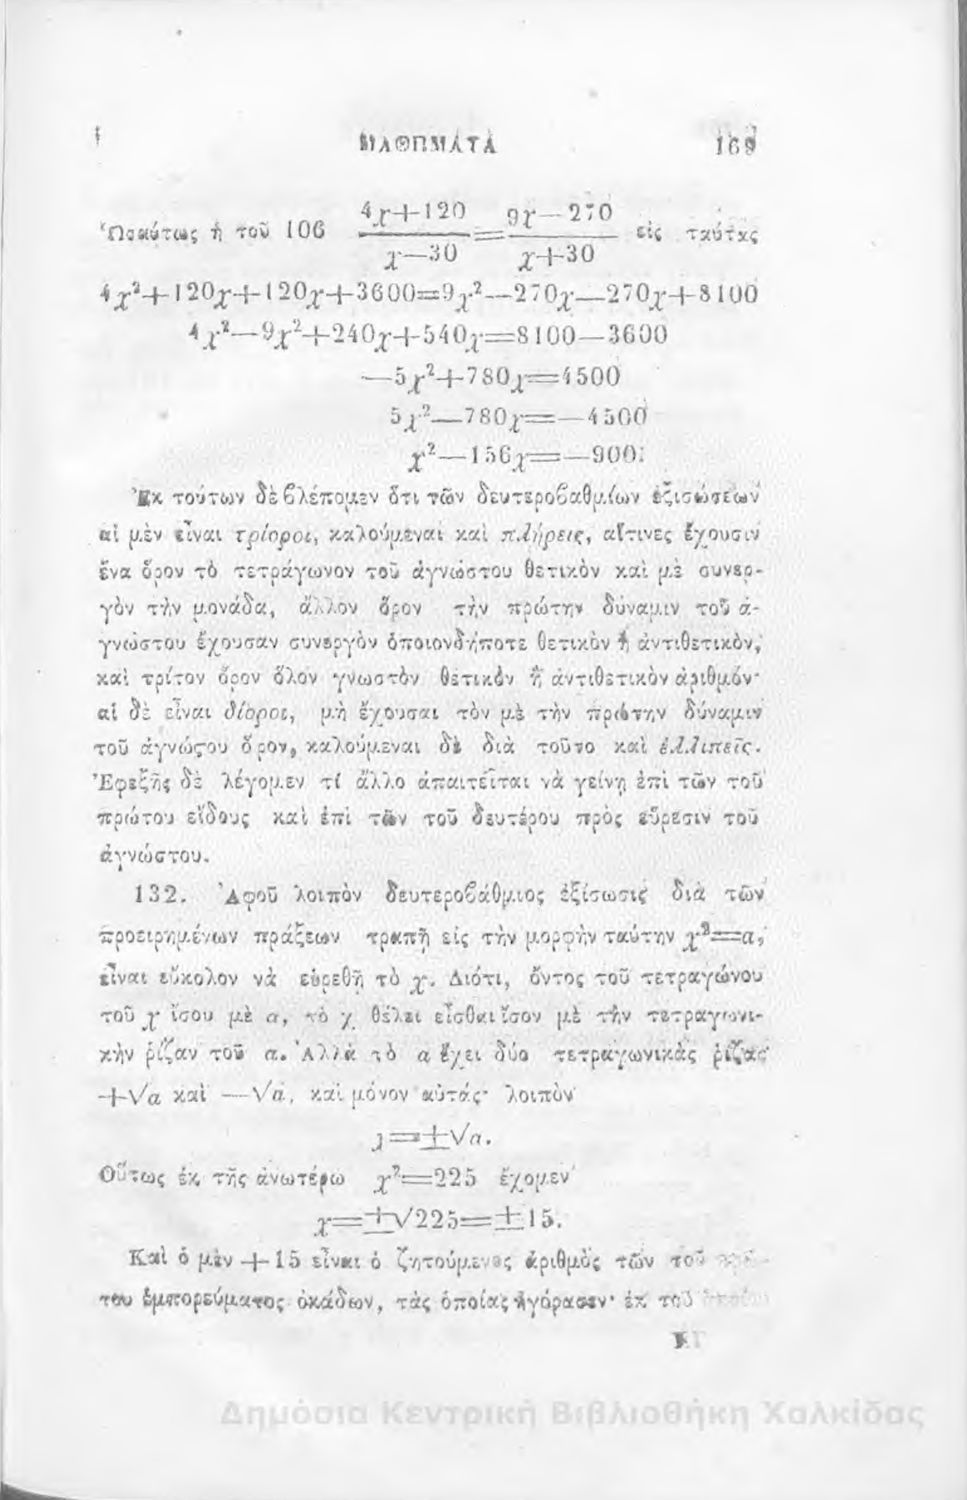 ΜΑΘΗΜΑΤΑ 169
Ὡσαύτως ἡ τοῦ 106 4χ+120/χ—30=9χ—270/χ+30 εἰς ταύτας
4χ²+120χ+120χ+3600=9χ²—270χ—270χ+8100
4χ²—9χ²+240χ+540χ=8100—3600
—5χ²+780χ=4500
5χ²—780χ=—4500
χ²—156χ=—900.
Ἐκ τούτων δὲ βλέπομεν ὅτι τῶν δευτεροβαθμίων ἐξισώσεων
αἱ μὲν εἶναι τρίοροι, καλούμεναι καὶ πλήρεις, αἵτινες ἔχουσιν
ἕνα ὅρον τὸ τετράγωνον τοῦ ἀγνώστου θετικὸν καὶ μὲ συνερ-
γὸν τὴν μονάδα, ἄλλον ὅρον τὴν πρώτην δύναμιν τοῦ ἀ-
γνώστου ἔχουσαν συνεργὸν ὁποιονδήποτε θετικὸν ἢ ἀντιθετικὸν,
καὶ τρίτον ὅρον ὅλον γνωστὸν θετικὸν ἢ ἀντιθετικὸν ἀριθμόν·
αἱ δὲ εἶναι δίοροι, μὴ ἔχουσαι τὸν μὲ τὴν πρώτην δύναμιν
τοῦ ἀγνώςου ὅρον, καλούμεναι δὲ διὰ τοῦτο καὶ ἐλλιπεῖς.
Ἐφεξῆς δὲ λέγομεν τί ἄλλο ἀπαιτεῖται νὰ γείνῃ ἐπὶ τῶν τοῦ
πρώτου εἴδους καὶ ἐπὶ τῶν τοῦ δευτέρου πρὸς εὕρεσιν τοῦ
ἀγνώστου.
132. Ἀφοῦ λοιπὸν δευτεροβάθμιος ἐξίσωσις διὰ τῶν
προειρημένων πράξεων τραπῇ εἰς τὴν μορφὴν ταύτην χ²=α,
εἶναι εὔκολον νὰ εὑρεθῇ τὸ χ. Διότι, ὄντος τοῦ τετραγώνου
τοῦ χ ἴσου μὲ α, τὸ χ θέλει εἶσθαι ἴσον μὲ τὴν τετραγωνι-
κὴν ῥίζαν τοῦ α. Ἀλλὰ τὸ α ἔχει δύο τετραγωνικὰς ῥίζας
+√α καὶ —√α, καὶ μόνον αὐτάς· λοιπὸν
χ=±√α.
Οὕτως ἐκ τῆς ἀνωτέρω χ²=225 ἔχομεν
χ=±√225=±15.
Καὶ ὁ μὲν +15 εἶναι ὁ ζητούμενος ἀριθμὸς τῶν τοῦ
του ἐμπορεύματος ὀκάδων, τὰς ὁποίας ἠγόρασεν· ἐκ τοῦ
Δημόσια Κεντρική Βιβλιοθήκη Χαλκίδας